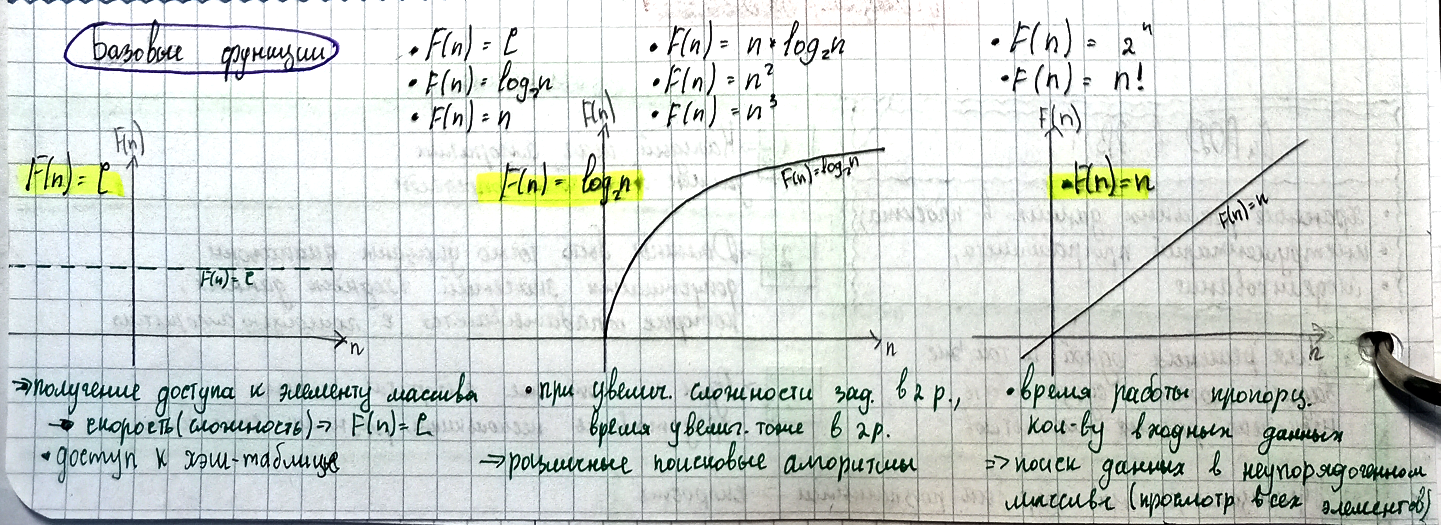 Базовые функции
• F(n) = C
• F(n) = log₂n
• F(n) = n
• F(n) = n * log₂n
• F(n) = n²
• F(n) = n³
• F(n) = 2ⁿ
• F(n) = n!
F(n) = C
F(n)
F(n) = C
n
⇒ получение доступа к элементу массива
→ скорость (сложность) ⇒ F(n) = C
• доступ к хэш-таблице
F(n) = log₂n
F(n)
F(n) = log₂n
n
• при увелич. сложности зад. в 2 р.,
время увелич. тоже в 2р.
⇒ различные поисковые алгоритмы
• F(n) = n
F(n)
F(n) = n
n
• время работы пропорц.
кол-ву входных данных
⇒ поиск данных в неупорядоченном
массиве (просмотр всех элементов)